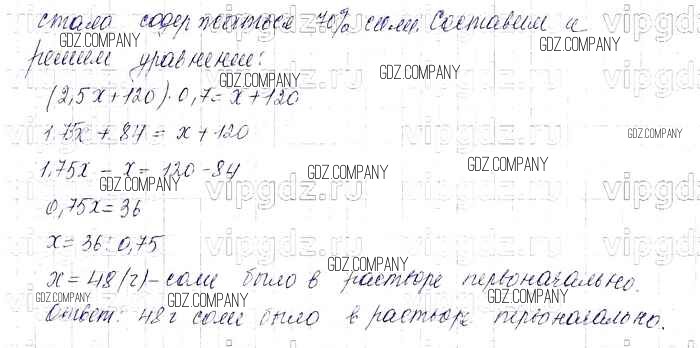 стало содержаться 70% соли. Составим и
решим уравнение:
(2,5x+120)·0,7=x+120
1,75x+84=x+120
1,75x-x=120-84
0,75x=36
x=36:0,75
x=48(г)-соли было в растворе первоначально.
Ответ: 48 г соли было в растворе первоначально.
GDZ.COMPANY
GDZ.COMPANY
GDZ.COMPANY
GDZ.COMPANY
GDZ.COMPANY
GDZ.COMPANY
GDZ.COMPANY
GDZ.COMPANY
GDZ.COMPANY
GDZ.COMPANY
GDZ.COMPANY
GDZ.COMPANY
vipgdz.ru
vipgdz.ru
vipgdz.ru
vipgdz.ru